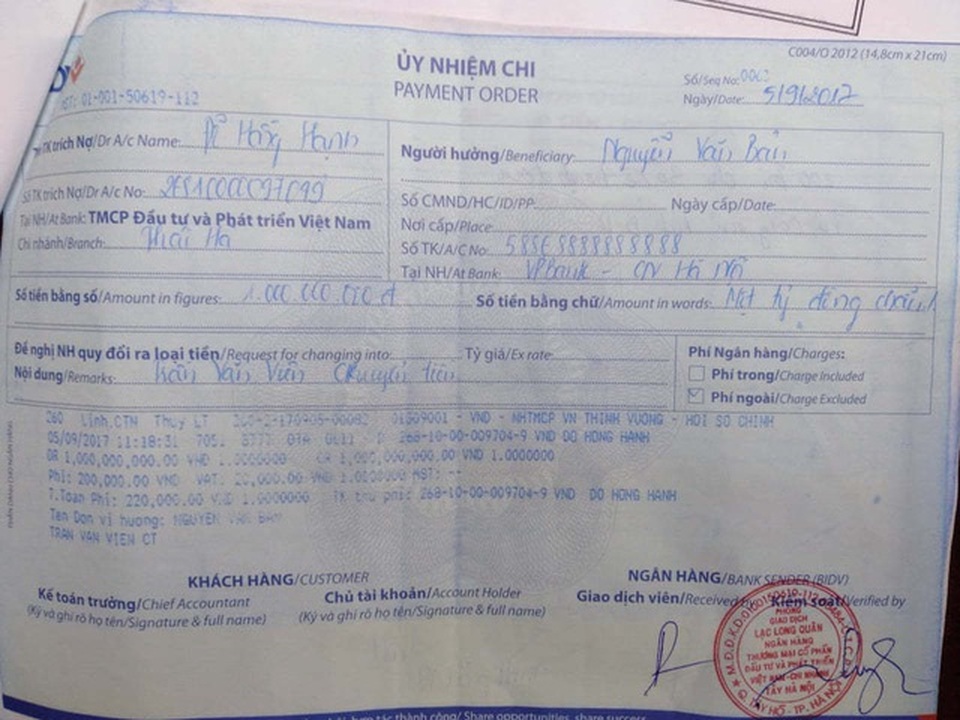 C004/O 2012 (14,8cm x 21cm)
ỦY NHIỆM CHI
PAYMENT ORDER
Số/Seq No:
Ngày/Date: 5/9/2017
MST: 01-001-50619-112
TK trích Nợ/Dr A/c Name: Đỗ Hồng Hạnh
Số TK trích Nợ/Dr A/c No:
Tại NH/At Bank: TMCP Đầu tư và Phát triển Việt Nam
Chi nhánh/Branch: Thái Hà
Người hưởng/Beneficiary: Nguyễn Văn Bản
Số CMND/HC/ID/PP Ngày cấp/Date:
Nơi cấp/Place:
Số TK/A/C No:
Tại NH/At Bank: VPBank - CN Hà Nội
Số tiền bằng số/Amount in figures: 1.000.000.000 đ
Số tiền bằng chữ/Amount in words: Một tỷ đồng chẵn
Đề nghị NH quy đổi ra loại tiền/Request for changing into: Tỷ giá/Ex rate:
Nội dung/Remarks: Trần Văn Viên chuyển tiền
Phí Ngân hàng/Charges:
Phí trong/Charge Included
Phí ngoài/Charge Excluded
260 Linh.CTN Thuy LT 01309001 - VND - NHTMCP VN THINH VUONG - HOI SO CHINH
05/09/2017 11:18:31 268-10-00-009704-9 VND DO HONG HANH
DR 1,000,000,000.00 VND 1.0000000 CR 1,000,000,000.00 VND 1.0000000
Phi: 200,000.00 VND VAT: 20,000.00 VND 1.0000000 MST: --
T.Toan Phi: 220,000.00 VND 1.0000000 TK thu phi: 268-10-00-009704-9 VND DO HONG HANH
Ten Don vi huong: NGUYEN VAN BAN
TRAN VAN VIEN CT
KHÁCH HÀNG/CUSTOMER
Kế toán trưởng/Chief Accountant
(Ký và ghi rõ họ tên/Signature & full name)
Chủ tài khoản/Account Holder
(Ký và ghi rõ họ tên/Signature & full name)
NGÂN HÀNG/BANK SENDER (BIDV)
Giao dịch viên/Received by Kiểm soát/Verified by
PHÒNG
GIAO DỊCH
LẠC LONG QUÂN
NGÂN HÀNG
THƯƠNG MẠI CỔ PHẦN
ĐẦU TƯ VÀ PHÁT TRIỂN
VIỆT NAM-CHI NHÁNH
TÂY HÀ NỘI
Q. TÂY HỒ - TP. HÀ NỘI
Share opportunities, share success